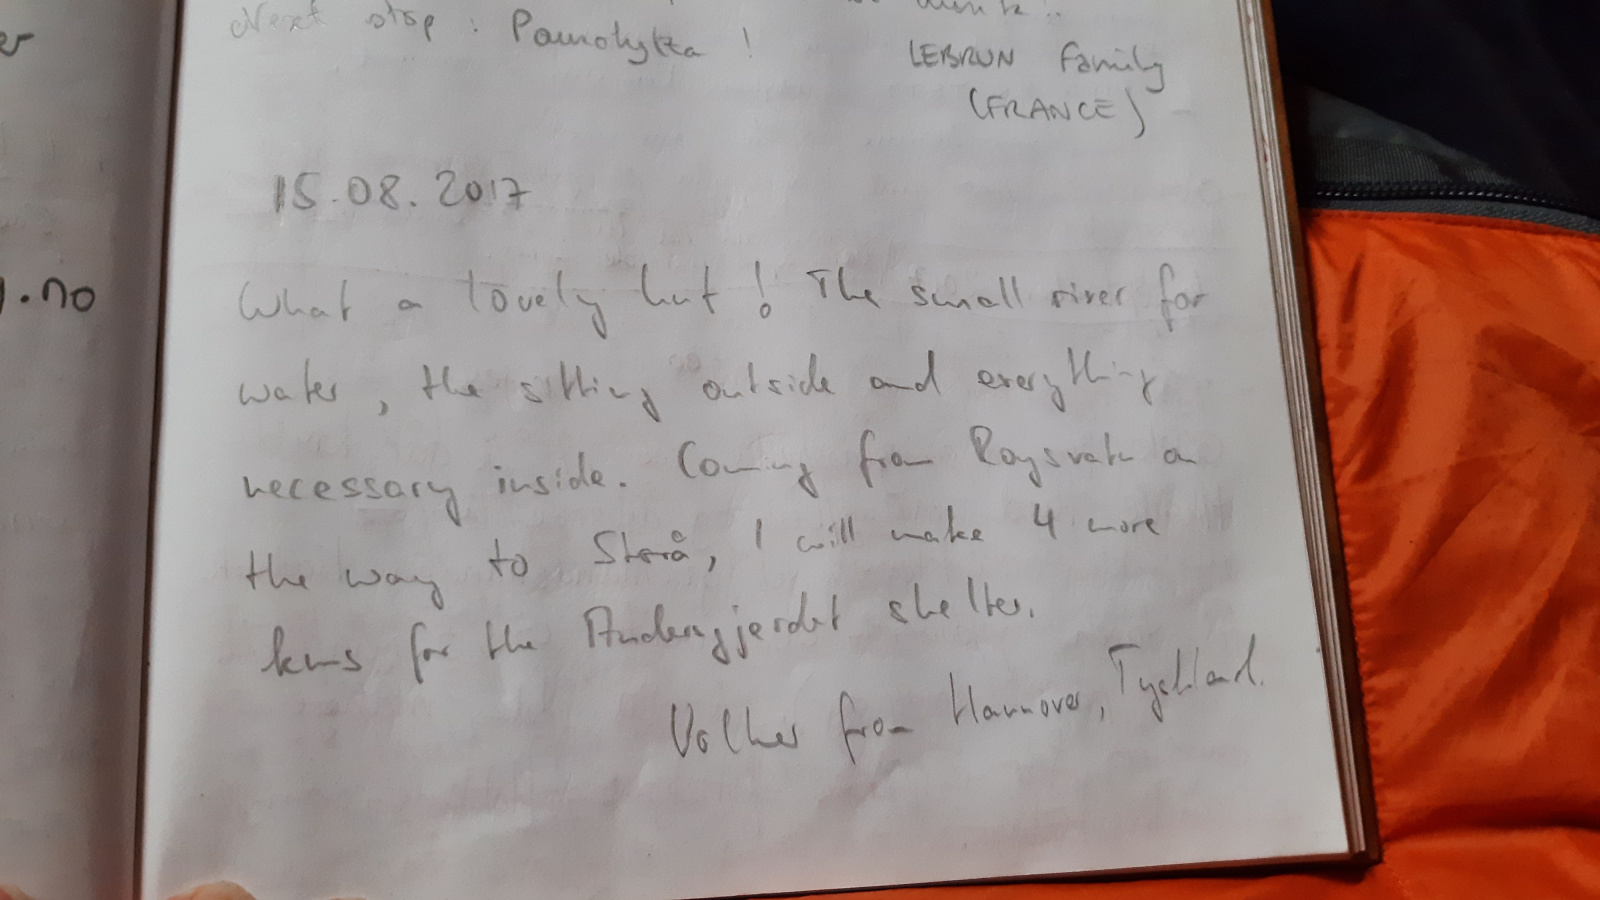 er
.no
Next stop : Paurohytta !
LEBRUN Family
(FRANCE)
15.08.2017
What a lovely hut! The small river for
water, the sitting outside and everything
necessary inside. Coming from Røysvatn on
the way to Storå, I will make 4 more
kms for the Andersgjerdet shelter.
Volker from Hannover, Tyskland.